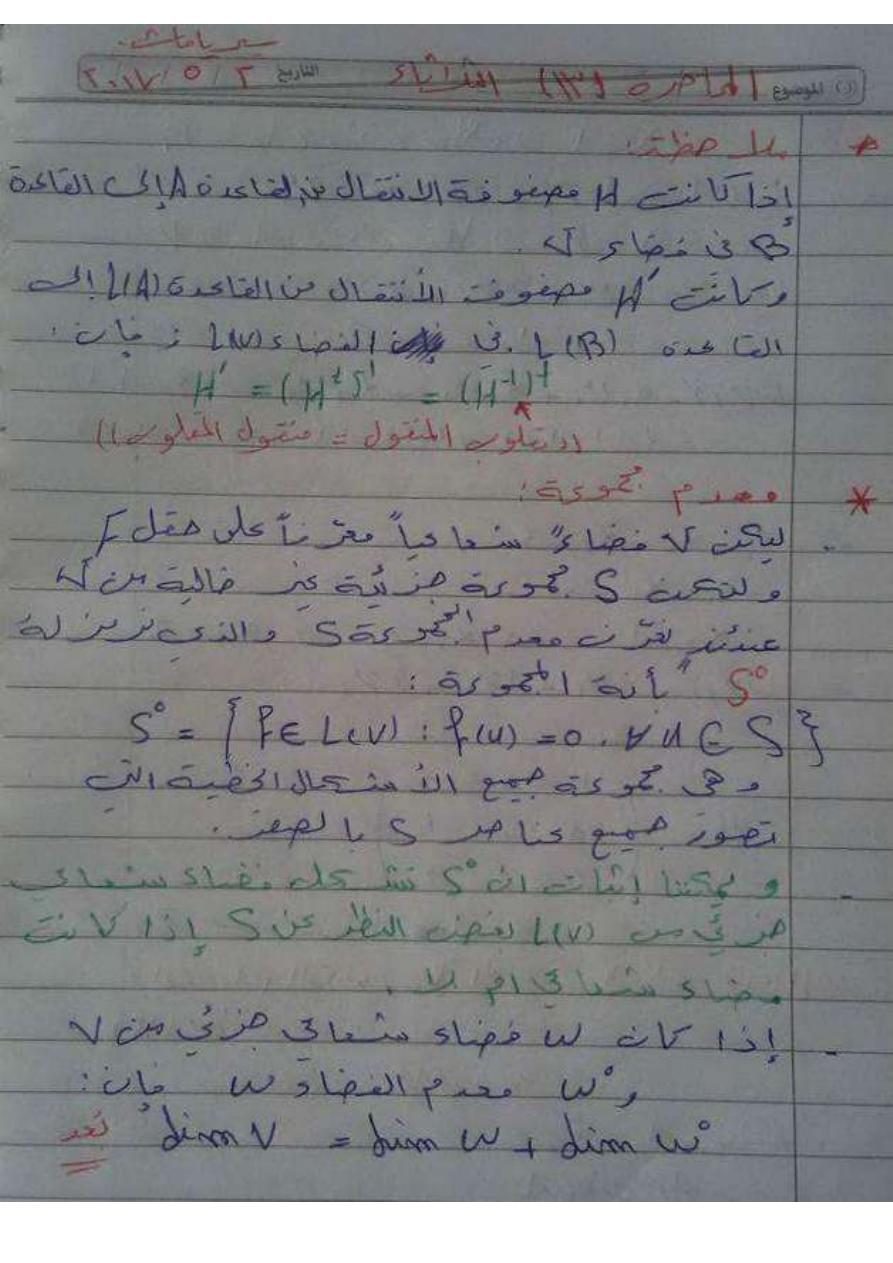 (د) الموضوع المحاضرة (١٣) الثلاثاء التاريخ ٢ / ٥ / ٢٠١٧
* ملاحظة:
إذا كانت H مصفوفة الانتقال من القاعدة A إلى القاعدة
B في فضاء V.
وكانت H' مصفوفة الأنتقال من القاعدة L(A) إلى
القاعدة L(B) في الفضاء L(V) فإن:
H' = (H^t)^-1 = (H^-1)^t
((مقلوب المنقول = منقول المقلوب))
* معدم مجموعة:
- ليكن V فضاءً شعاعياً معرّفاً على حقل F
ولتكن S مجموعة جزئية غير خالية من V
عندئذ نعرّف معدم المجموعة S والذي نرمز له
S° بأنه المجموعة:
S° = { f ∈ L(V) : f(u) = 0 . ∀ u ∈ S }
وهي مجموعة جميع الأشكال الخطية التي
تصور جميع عناصر S بالصفر.
- و يمكننا إثبات ان S° تشكل فضاء شعاعي
جزئي من L(V) بغض النظر عن S إذا كانت
فضاء شعاعي ام لا.
- إذا كان W فضاء شعاعي جزئي من V
و W° معدم الفضاء W فإن:
dim V = dim W + dim W° بُعد